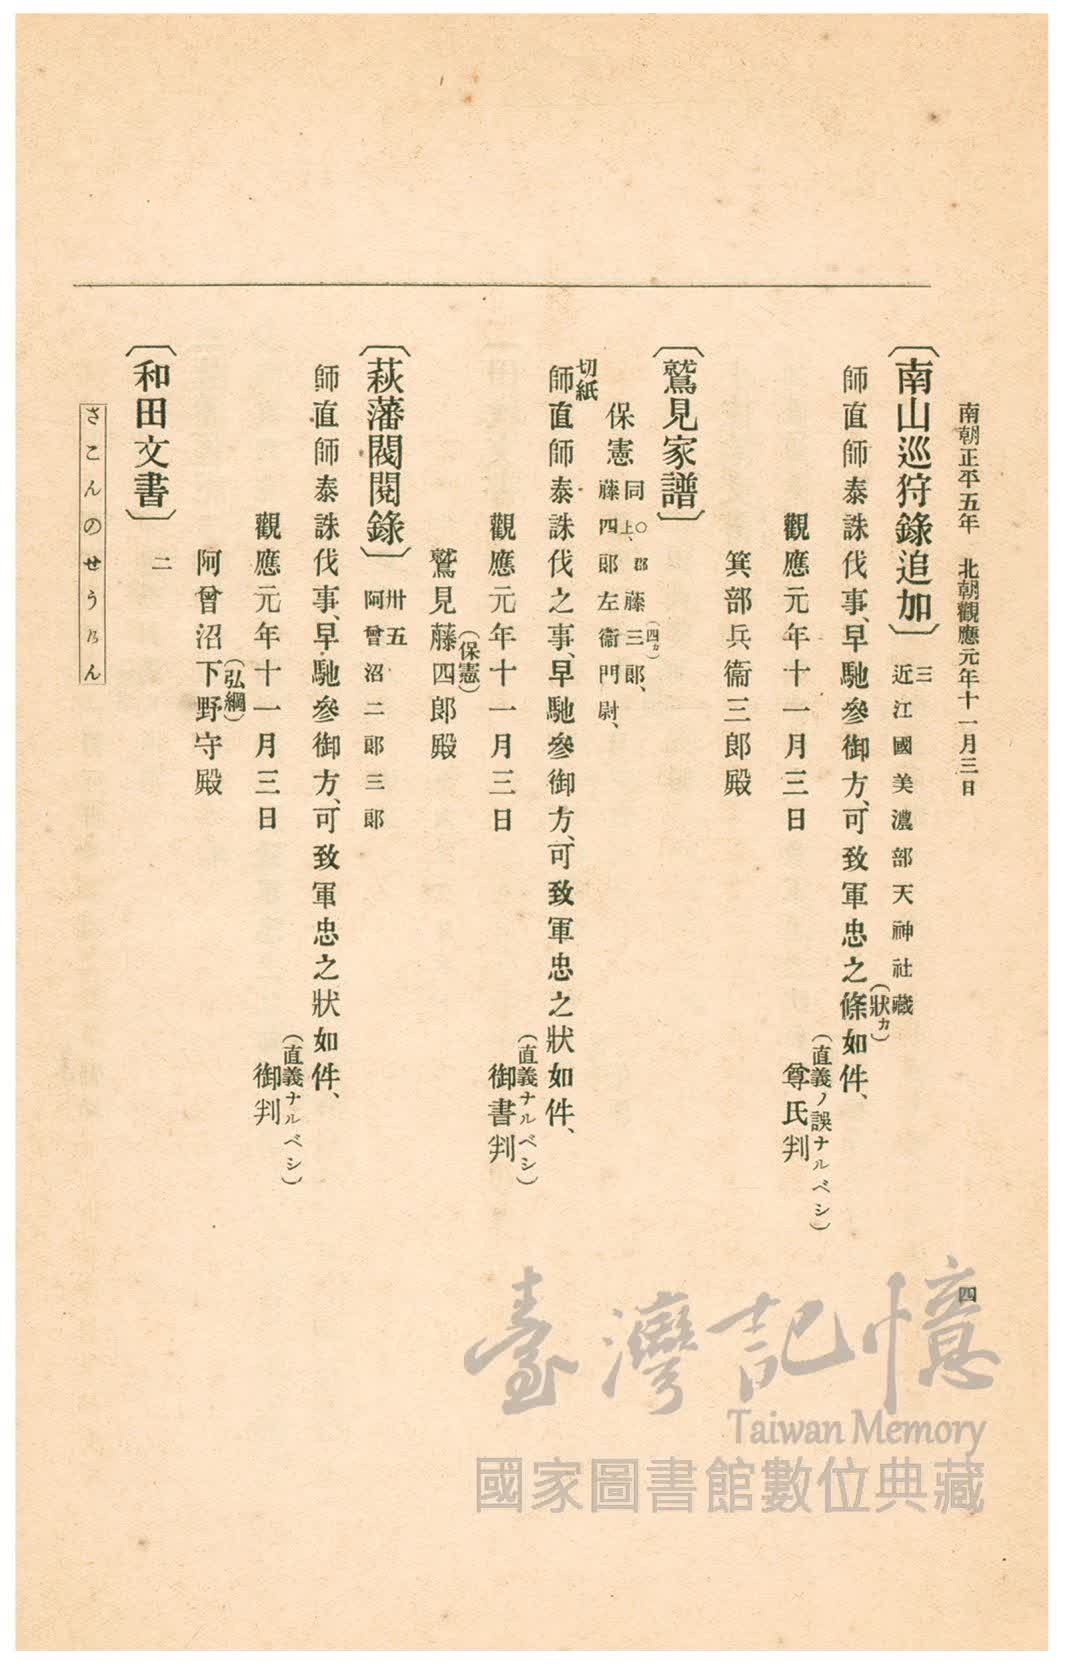 南朝正平五年　北朝觀應元年十一月三日
四
〔南山巡狩錄追加〕三
近江國美濃部天神社藏
師直師泰誅伐事、早馳參御方、可致軍忠之條(狀カ)如件、
觀應元年十一月三日
(直義ノ誤ナルベシ)
尊氏判
箕部兵衞三郎殿
〔鷲見家譜〕
保憲
同〇郡藤三(四カ)郎、
上、
藤四郎左衞門尉、
切紙
師直師泰誅伐之事、早馳參御方、可致軍忠之狀如件、
觀應元年十一月三日
(直義ナルベシ)
御書判
(保憲)
鷲見藤四郎殿
〔萩藩閥閱錄〕卅五
阿曾沼二郎三郎
師直師泰誅伐事、早馳參御方、可致軍忠之狀如件、
觀應元年十一月三日
(直義ナルベシ)
御判
(弘綱)
阿曾沼下野守殿
〔和田文書〕二
さこんのせう乃ん
臺灣記憶
Taiwan Memory
國家圖書館數位典藏